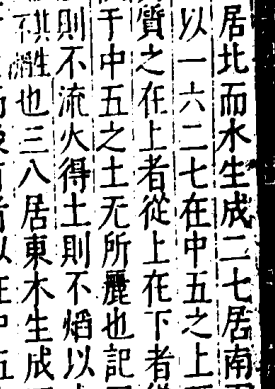 居北而水生成二七居南
以一六二七在中五之上
質之在上者從上在下者
于中五之土无所麗也記
則不流火得土則不熖以
也三八居東木生成